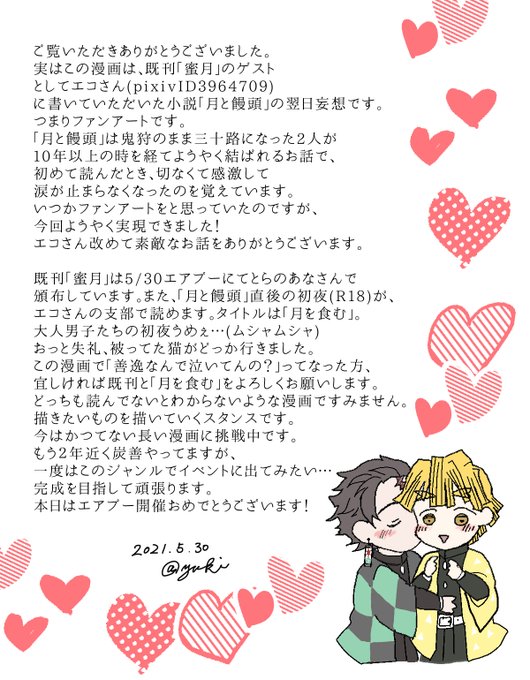 ご覧いただきありがとうございました。
実はこの漫画は、既刊「蜜月」のゲスト
としてエコさん(pixivID3964709)
に書いていただいた小説「月と饅頭」の翌日妄想です。
つまりファンアートです。
「月と饅頭」は鬼狩のまま三十路になった2人が
10年以上の時を経てようやく結ばれるお話で、
初めて読んだとき、切なくて感激して
涙が止まらなくなったのを覚えています。
いつかファンアートをと思っていたのですが、
今回ようやく実現できました!
エコさん改めて素敵なお話をありがとうございます。
既刊「蜜月」は5/30エアブーにてとらのあなさんで
頒布しています。また、「月と饅頭」直後の初夜(R18)が、
エコさんの支部で読めます。タイトルは「月を食む」。
大人男子たちの初夜うめぇ…(ムシャムシャ)
おっと失礼、被ってた猫がどっか行きました。
この漫画で「善逸なんで泣いてんの?」ってなった方、
宜しければ既刊と「月を食む」をよろしくお願いします。
どっちも読んでないとわからないような漫画ですみません。
描きたいものを描いていくスタンスです。
今はかつてない長い漫画に挑戦中です。
もう2年近く炭善やってますが、
一度はこのジャンルでイベントに出てみたい…
完成を目指して頑張ります。
本日はエアブー開催おめでとうございます!
2021.5.30
@yuki